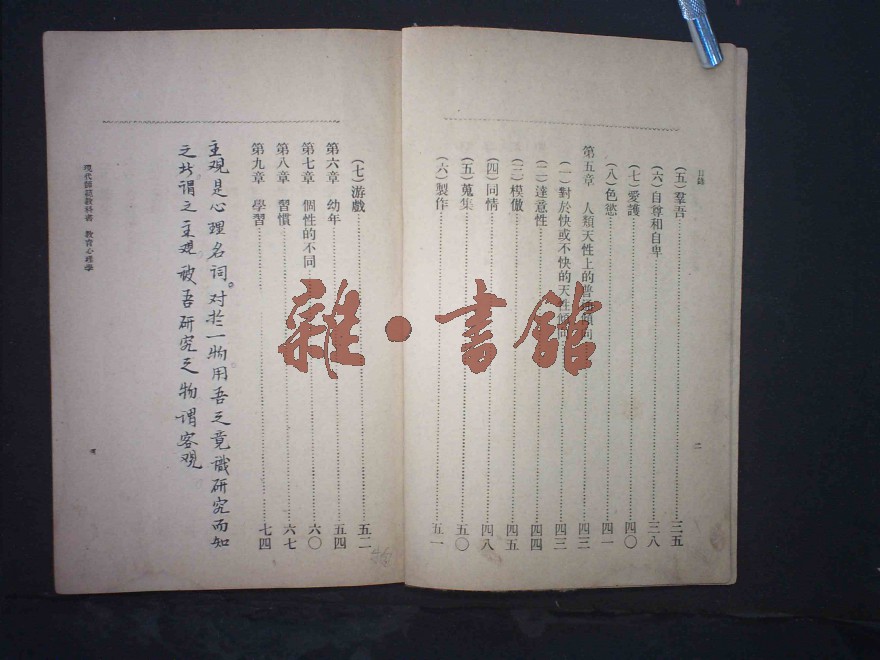 目錄
(五)羣吾……三五
(六)自尊和自卑……三八
(七)愛護……四〇
(八)色慾……四一
第五章 人類天性上的普通傾向……四三
(一)對於快或不快的天性傾向……四三
(二)達意性……四四
(三)模倣……四五
(四)同情……四八
(五)蒐集……五〇
(六)製作……五一
二
(七)游戲……五二
第六章 幼年……五四
第七章 個性的不同……六〇
第八章 習慣……六七
第九章 學習……七四
主观是心理名词。对於一物用吾之意識研究而知
之此谓之主观,被吾研究之物谓客观
現代師範教科書 教育心理學
雜·書館